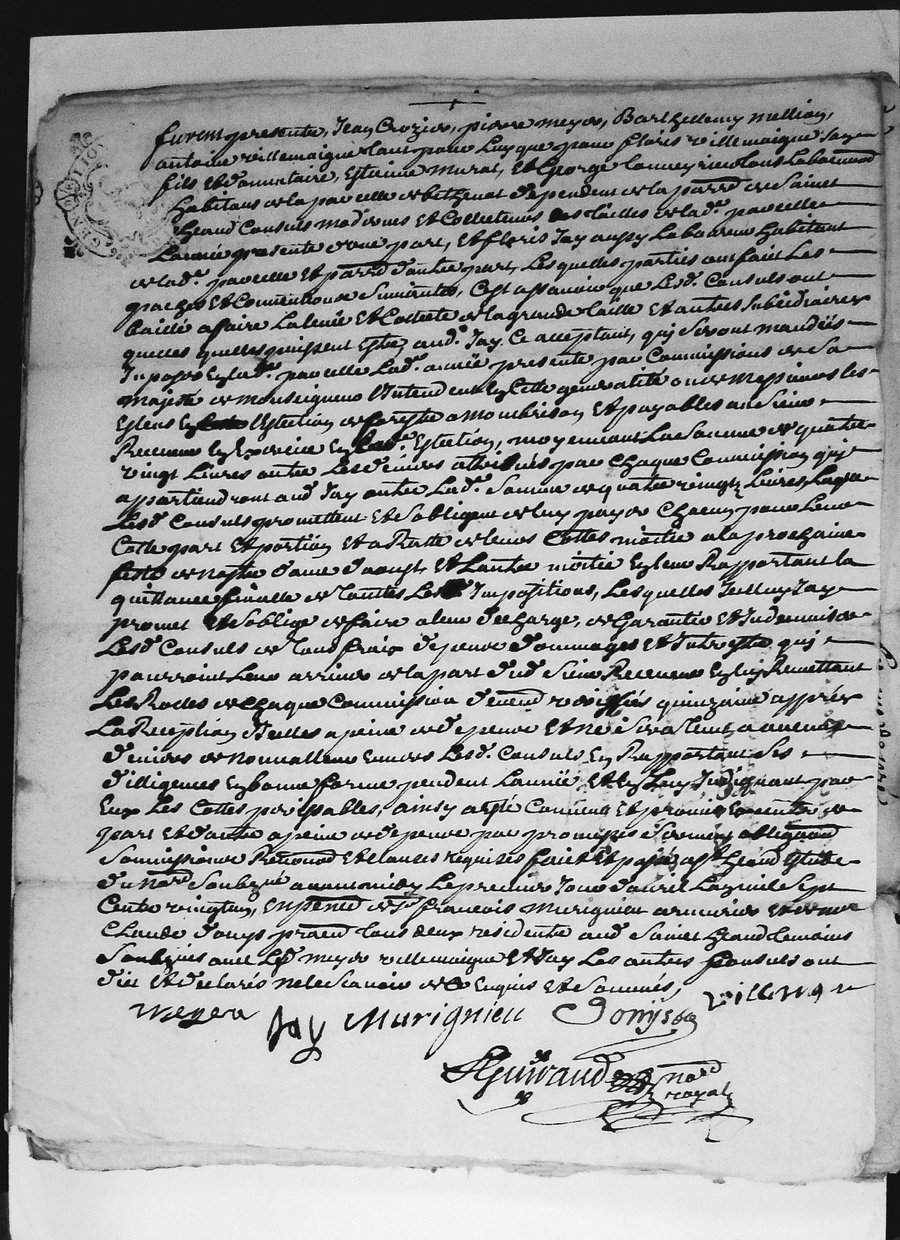 furent presents, Jean Crozier, pierre meyer, Barthelemy mellion,
antoine villemaigne tant pour luy que pour floris villemaigne son
fils et donnataire, estienne murat, et George tous Laboureurs
habitans de la parcelle de dependent de la parr. de Saint
heand Consuls modernes et Collecteurs des tailles de lad. parcelle
L'année presente d'une part, et floris Jay aussy Laboureur habitant
de lad. parcelle et parr. d'autre part, Lesquelles parties ont fait Les
paches et Conventions Suivantes, C'est assavoir que Lesd. Consuls ont
baillé a faire La levée et Collecte de la grande taille et autres Subsidiaires
quelles quelles puissent estre aud. Jay, Ce acceptant, quy Seront mandées
Imposer en lad. parcelle Lad. année presente par Commissions de Sa
majesté de monseigneur l'Intendent en Cette generalité ou de messieurs les
Esleus en l'Eslection de forestz a Montbrison, et payables au Sieur
Receveur en Exercice en lad. Eslection, moyennant La Somme de quatre
vingt Livres outre Les deniers attribués par Chaque Commission quy
appartiendront aud. Jay outre Lad. Somme de quatre vingtz Livres, Laquelle
Lesd. Consuls promettent et S'obligent de luy payer Chacun pour Leur
Cotte part et portion et a Ratte de leurs Cottes moitié a la prochaine
feste de nostre dame d'aoust, et L'autre moitié en leur Rapportant la
quittance finalle de toutes Lesd. Impositions, Lesquelles Led. Jay
promet et S'oblige de faire a leur decharge, de Garantir et Indemniser
Lesd. Consuls de tous fraix depens dommages et Interestz quy
pourroient Leur arriver de la part dud. Sieur Receveur en luy Remettant
Les Rooles de Chaque Commission deuement verisfiés quinzaine appres
La Reception d'Icelles a peine de depens et ne Sera tenu
deniers de nouvalleurs envers Lesd. Consuls En Rapportant Ses
dilligences en bonne forme pendent L'année et en Leur Indiquant par
Eux Les Cottes ainsy a esté Convenu et promis de
part et d'autre a peine de depens par promesses Serment obligations
Soumissions Renond et clauses requises fait et passé a St. heand Estude
du nore. Soubzné avant midy Le premier Jour d'avril L'an mil Sept
Centz vingt un, en presence de Sr francois Murignieu armurier et de me
Claude Jonys tous deux residents aud. Saint heand temoins
Soubznés avec Led. meyer villemaigne et Jay Les autres Consuls ont
dict et declarés ne le Scavoir de ce Enquis et Sommés
meyer Jay Murignieu Jonys villmagn
Guiraud nore.
royal